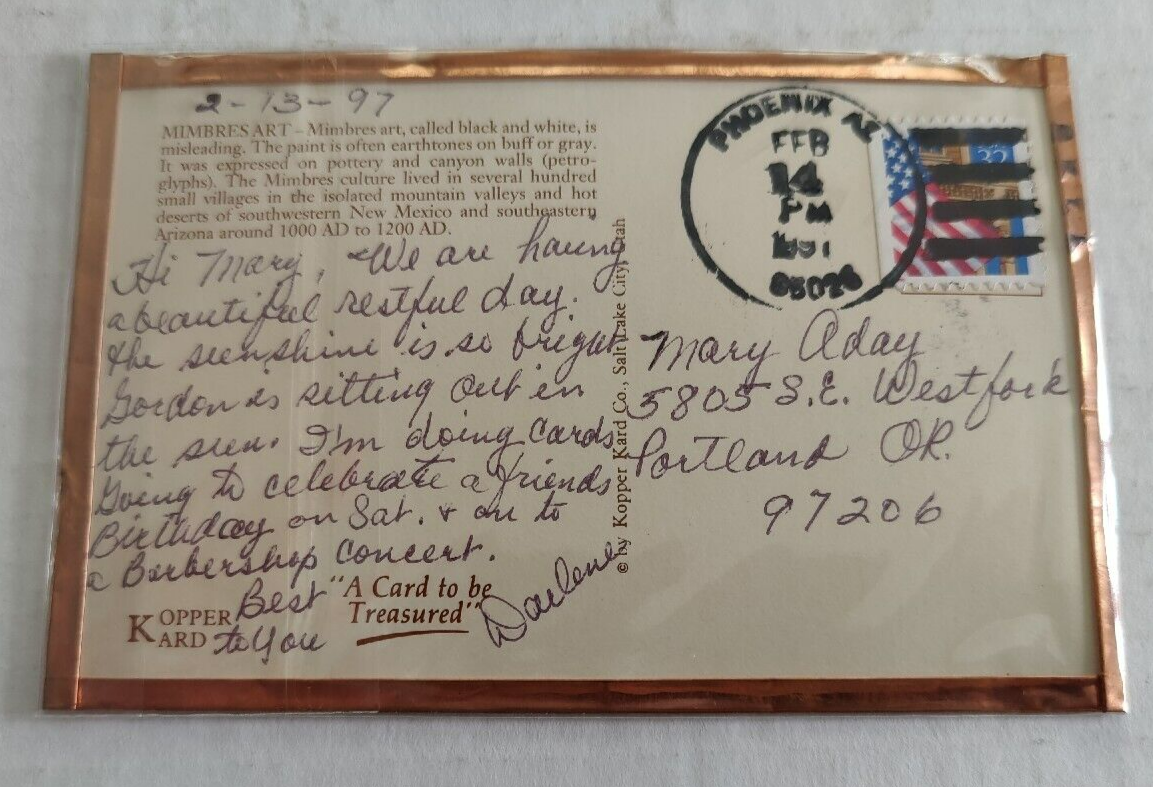 2-13-97
MIMBRES ART – Mimbres art, called black and white, is
misleading. The paint is often earthtones on buff or gray.
It was expressed on pottery and canyon walls (petro-
glyphs). The Mimbres culture lived in several hundred
small villages in the isolated mountain valleys and hot
deserts of southwestern New Mexico and southeastern
Arizona around 1000 AD to 1200 AD.
Hi Mary, We are having
a beautiful restful day.
the sunshine is so bright
Gordon is sitting out in
the sun. I'm doing Cards
Going to celebrate a friends
Birthday on Sat. & on to
a Barbershop Concert.
Best
to You
Darlene
KOPPER
KARD
"A Card to be
Treasured"
© by Kopper Kard Co., Salt Lake City, Utah
PHOENIX AZ
FEB
14
PM
32
Mary Aday
5805 S.E. Westfork
Portland OR.
97206